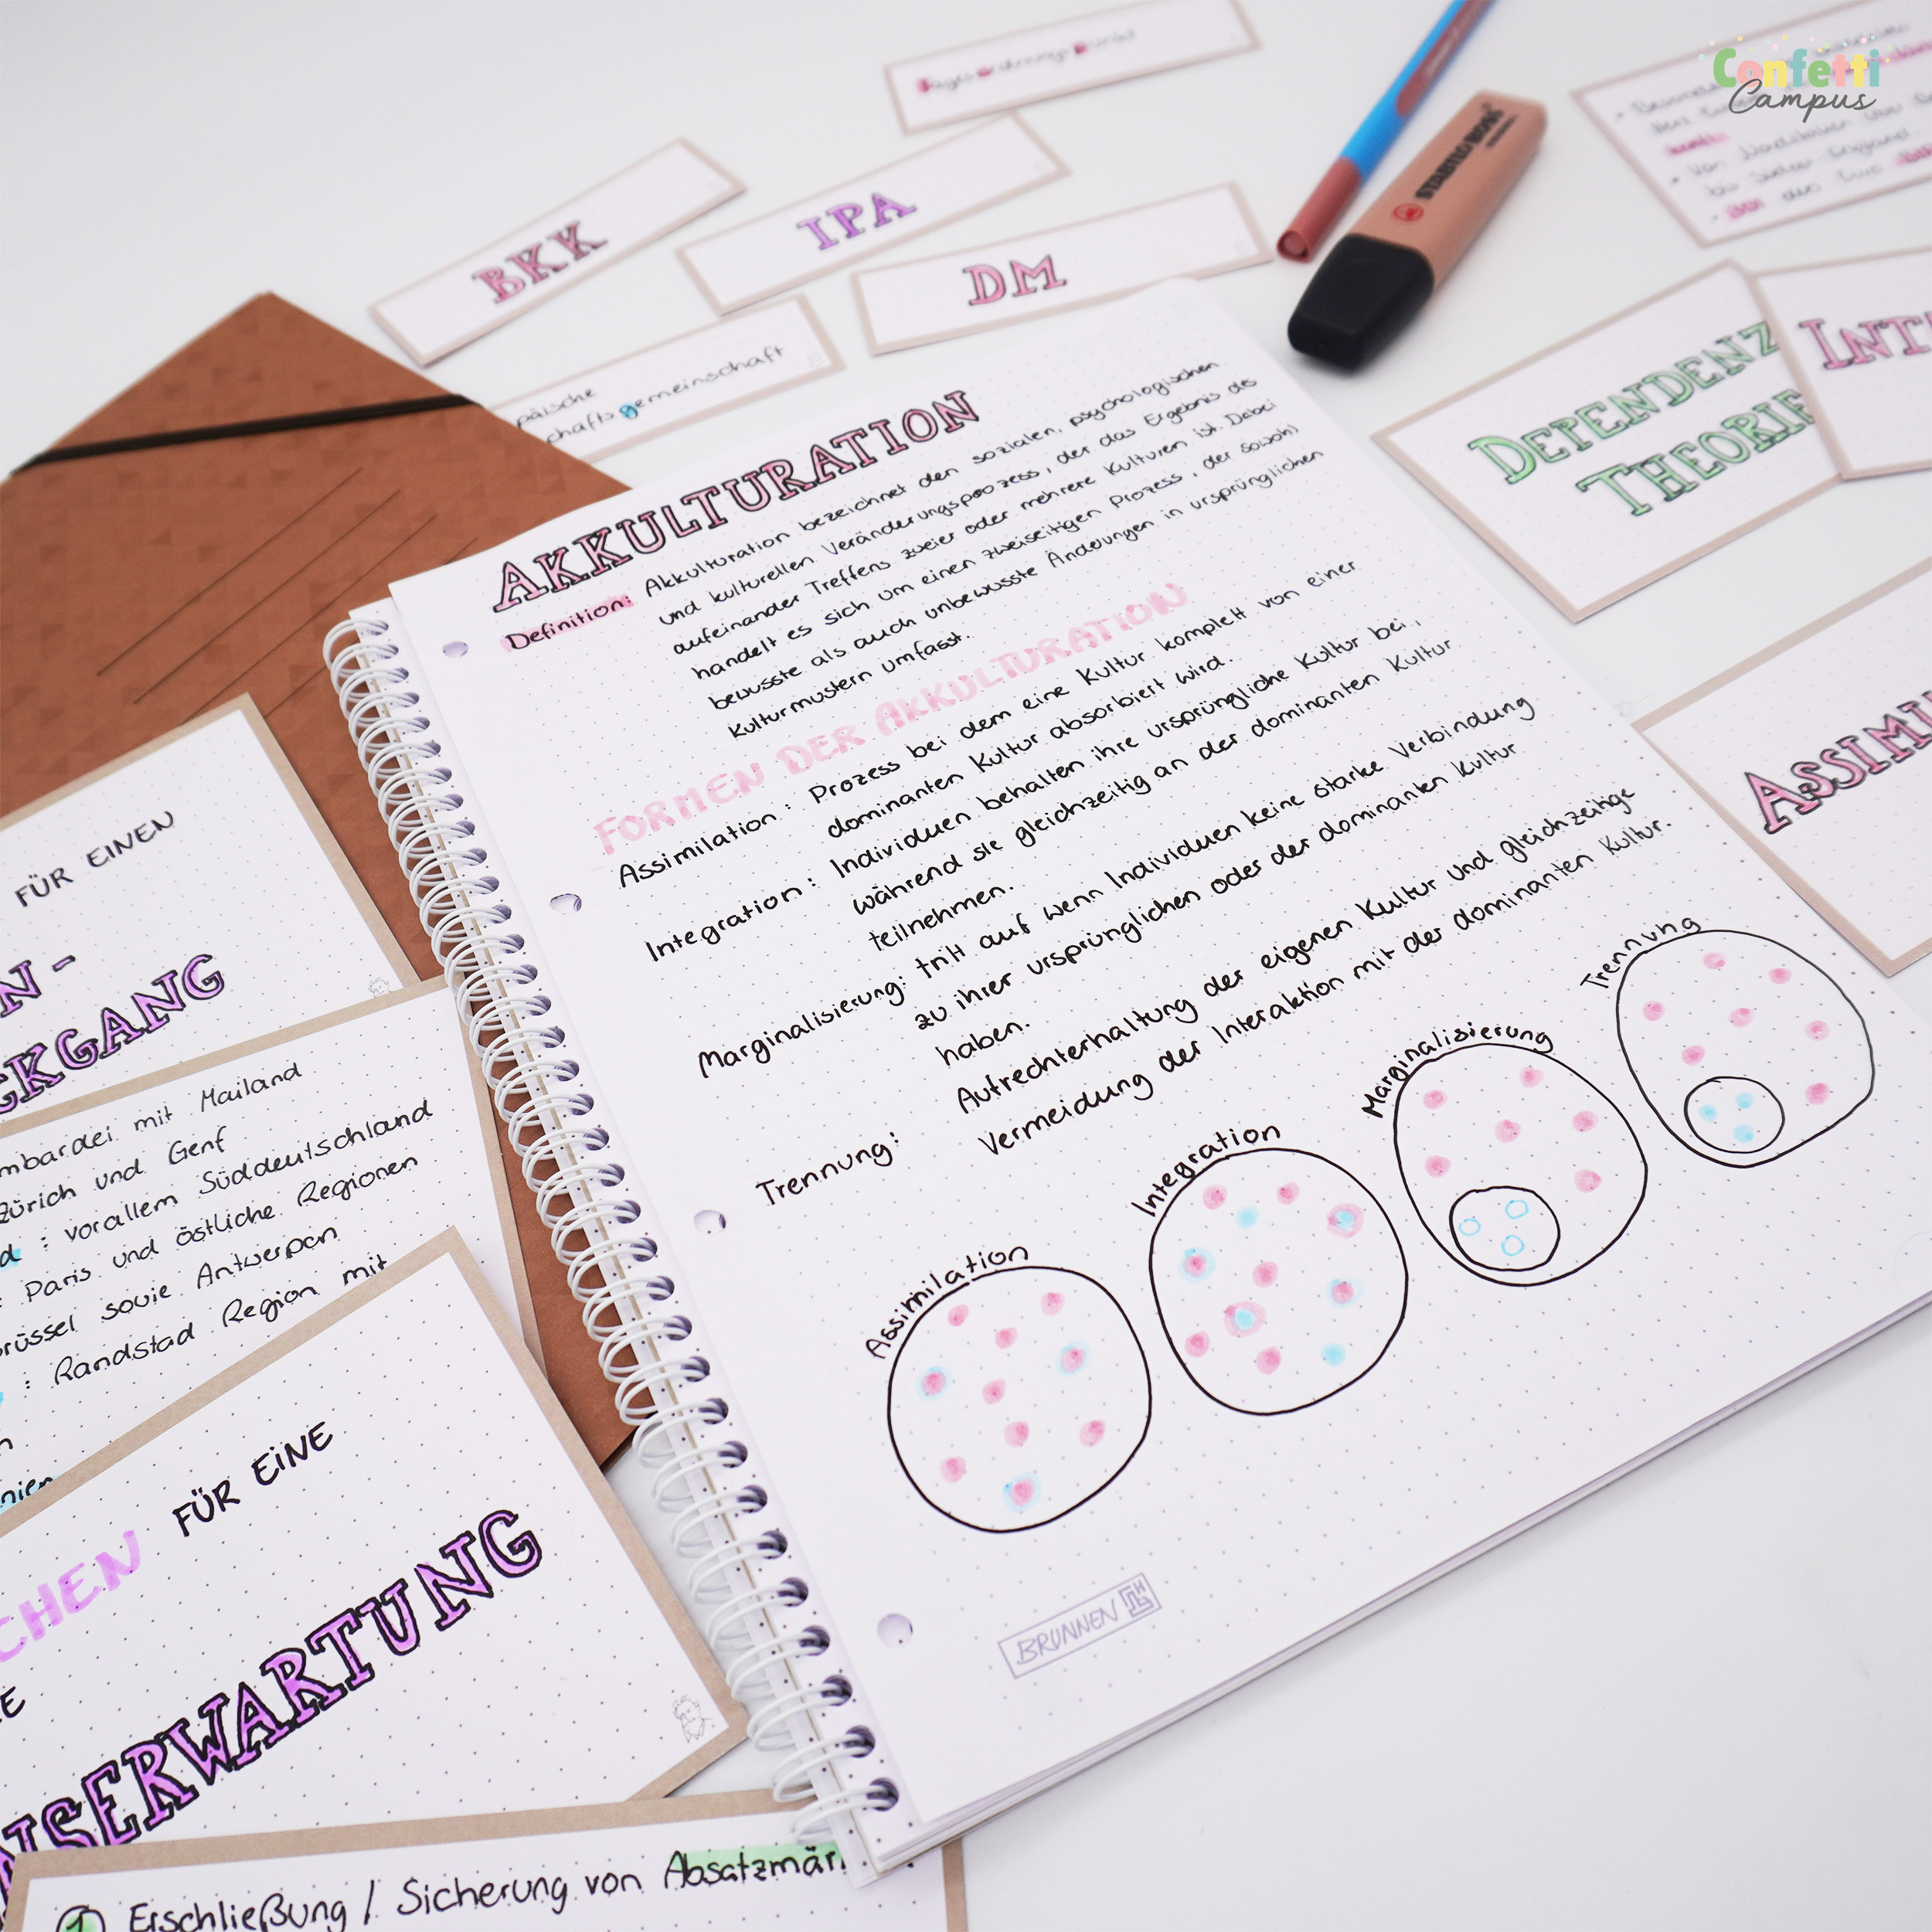 Confetti
Campus
STABILO BOSS
BKK
IPA
DM
päische
chaftsgemeinschaft
DEPENDENZ
THEORIE
INT
ASSIMI
AKKULTURATION
Definition: Akkulturation bezeichnet den sozialen, psychologischen
und kulturellen Veränderungsprozess, der das Ergebnis des
aufeinander Treffens zweier oder mehrere Kulturen ist. Dabei
handelt es sich um einen zweiseitigen Prozess, der sowohl
bewusste als auch unbewusste Änderungen in ursprünglichen
Kulturmustern umfasst.
FORMEN DER AKKULTURATION
Assimilation: Prozess bei dem eine Kultur komplett von einer
dominanten Kultur absorbiert wird.
Integration: Individuen behalten ihre ursprüngliche Kultur bei,
während sie gleichzeitig an der dominanten Kultur
teilnehmen.
Marginalisierung: tritt auf wenn Individuen keine starke Verbindung
zu ihrer ursprünglichen oder der dominanten Kultur
haben.
Trennung: Aufrechterhaltung der eigenen Kultur und gleichzeitige
Vermeidung der Interaktion mit der dominanten Kultur.
Assimilation
Integration
Marginalisierung
Trennung
BRUNNEN
FÜR EINEN
N-
CKGANG
mbardei mit Mailand
Zürich und Genf
d: vorallem Süddeutschland
: Paris und östliche Regionen
rüssel sowie Antwerpen
: Randstad Region mit
n
nien
CHEN FÜR EINE
E
NSERWARTUNG
1 Erschließung / Sicherung von Absatzmär